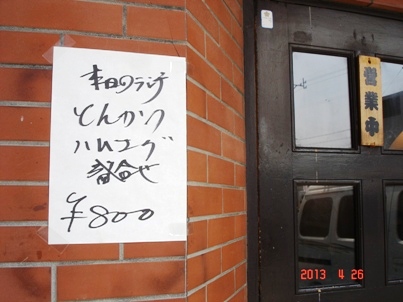 本日のランチ
とんかつ
ハムエグ
盛合せ
¥800
営業中
2013 4 26